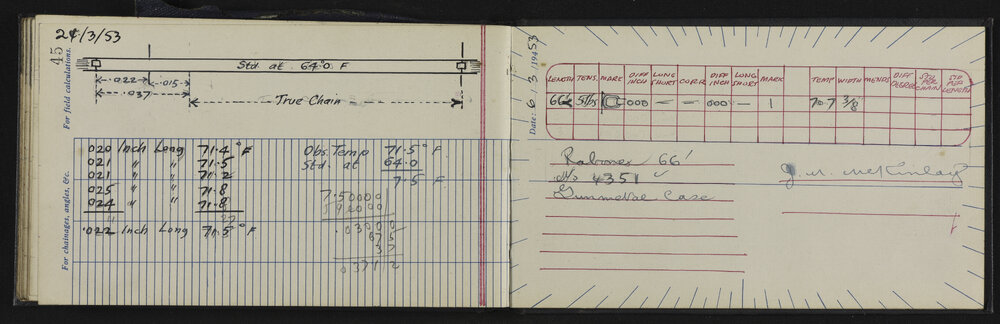 24/3/53
45
Std. at 64°0 F
.022 .015
.037
True Chain
For field calculations.
.020 Inch Long 71.4° F
.021 " " 71.5
.021 " " 71.2
.025 " " 71.8
.024 " " 71.8
.022 Inch Long 71.5° F
Obs. Temp 71.5° F.
Std. at 64.0
7.5 F
7.50000
.03000
675
37
.03712
For chainages, angles, &c.
Date: 6/3/1953
LENGTH TENS. MARK DIFF INCH LONG SHORT CORR. DIFF INCH LONG SHORT MARK TEMP WIDTH MENDS DIFF DEGREE STD. PER CHAIN STD REF LENGTH
66' 000 — — 000 — 1 707 3/8
Rabones 66'
No 4351
Gunmetal Case
J. M. McKinlay